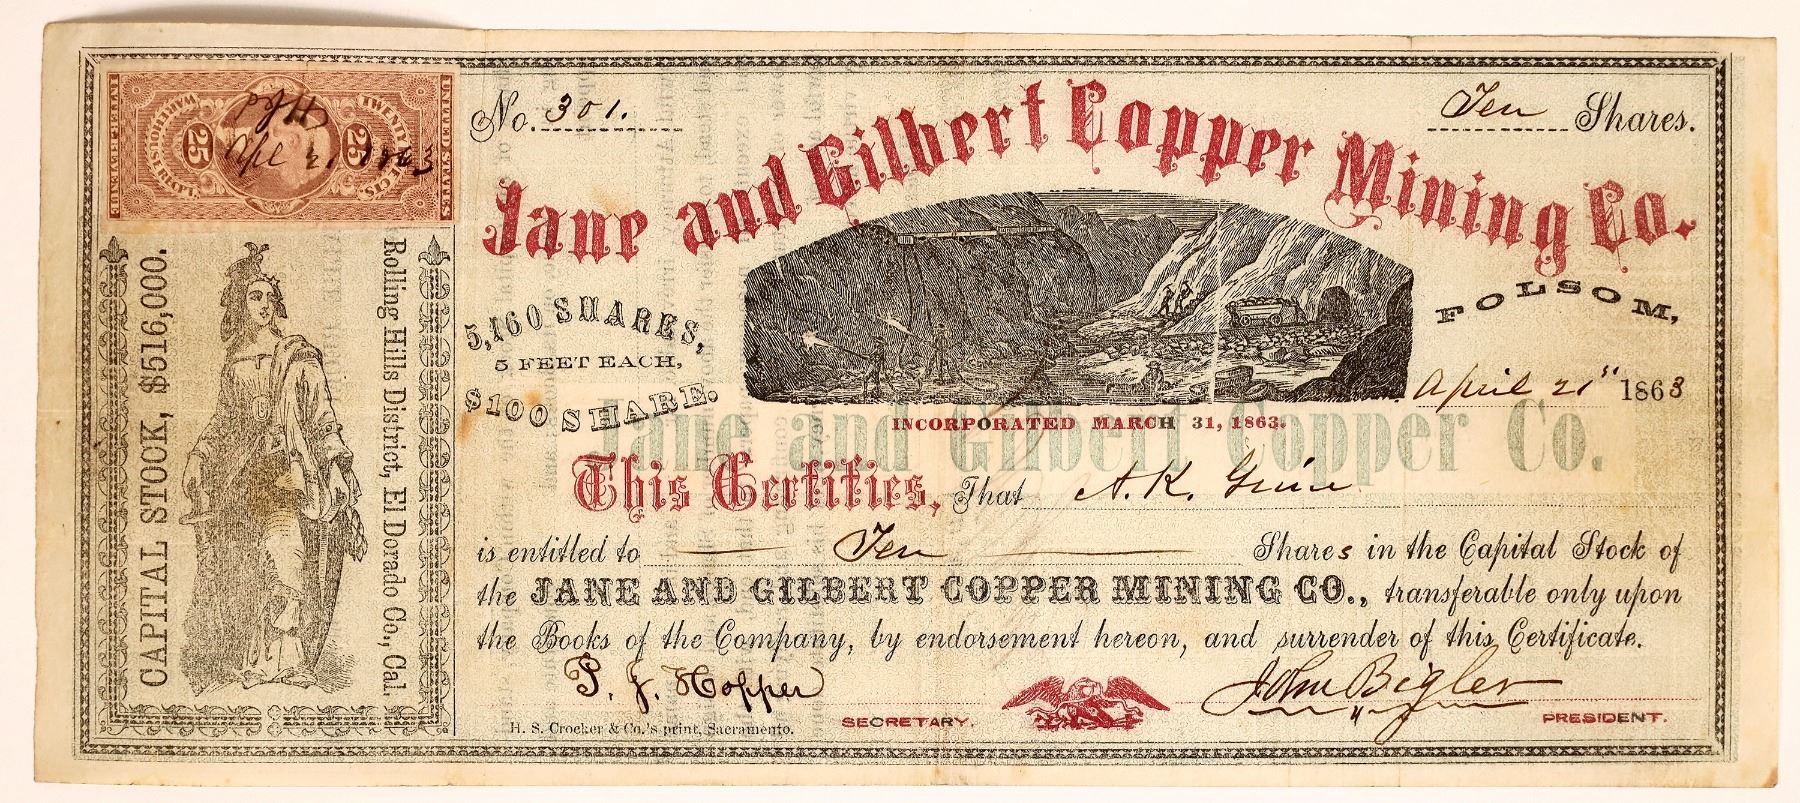 No. 301.
Ten Shares.
Jane and Gilbert Copper Mining Co.
UNITED STATES
TWENTY FIVE CENTS.
25 25
WAREHOUSE RECEIPT
INTER. REVENUE
Apl 21 1863
5,160 SHARES,
5 FEET EACH,
$100 SHARE.
FOLSOM,
April 21st 1863
INCORPORATED MARCH 31, 1863.
Jane and Gilbert Copper Co.
This Certifies, That A. K. Grim
is entitled to Ten Shares in the Capital Stock of
the JANE AND GILBERT COPPER MINING CO., transferable only upon
the Books of the Company, by endorsement hereon, and surrender of this Certificate.
P. J. Hopper
SECRETARY.
John Bigler
PRESIDENT.
H. S. Crocker & Co.'s print, Sacramento.
CAPITAL STOCK, $516,000.
Rolling Hills District, El Dorado Co., Cal.